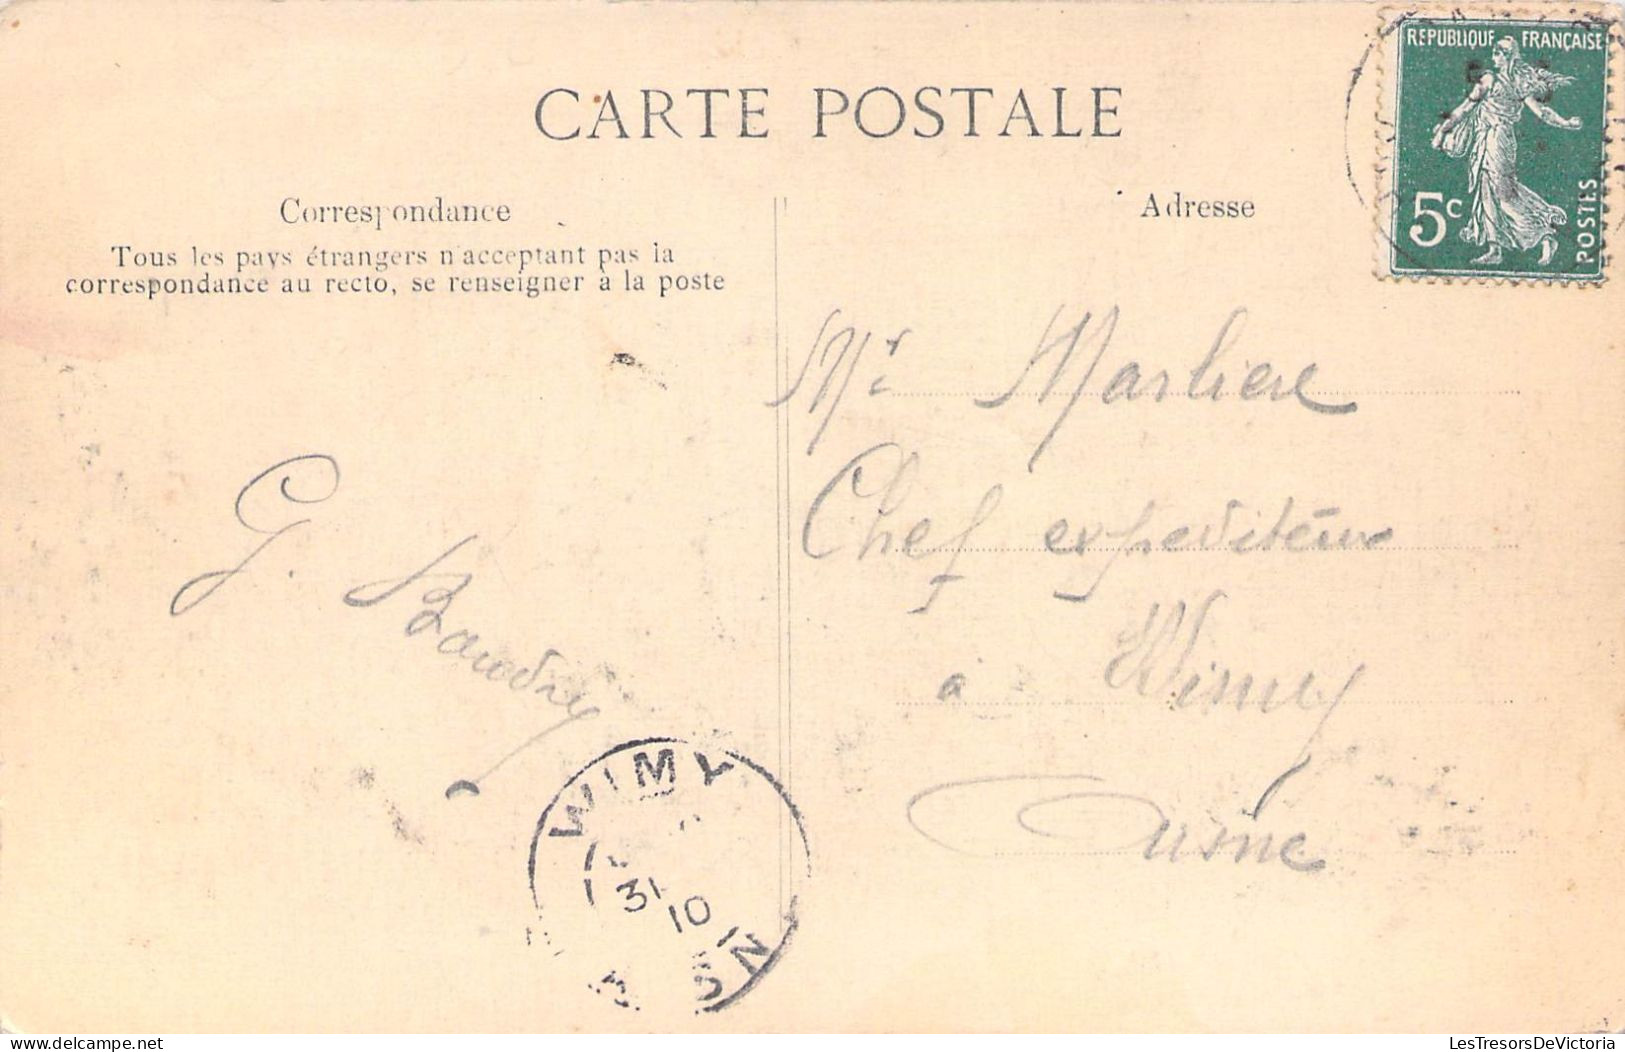 CARTE POSTALE
REPUBLIQUE FRANÇAISE
5c
POSTES
Correspondance
Tous les pays étrangers n'acceptant pas la
correspondance au recto, se renseigner à la poste
Adresse
Mr Marliere
Chef expediteur
à Wimy
Aisne
G. Baudry
WIMY
31
10
delcampe.net
LesTresorsDeVictoria